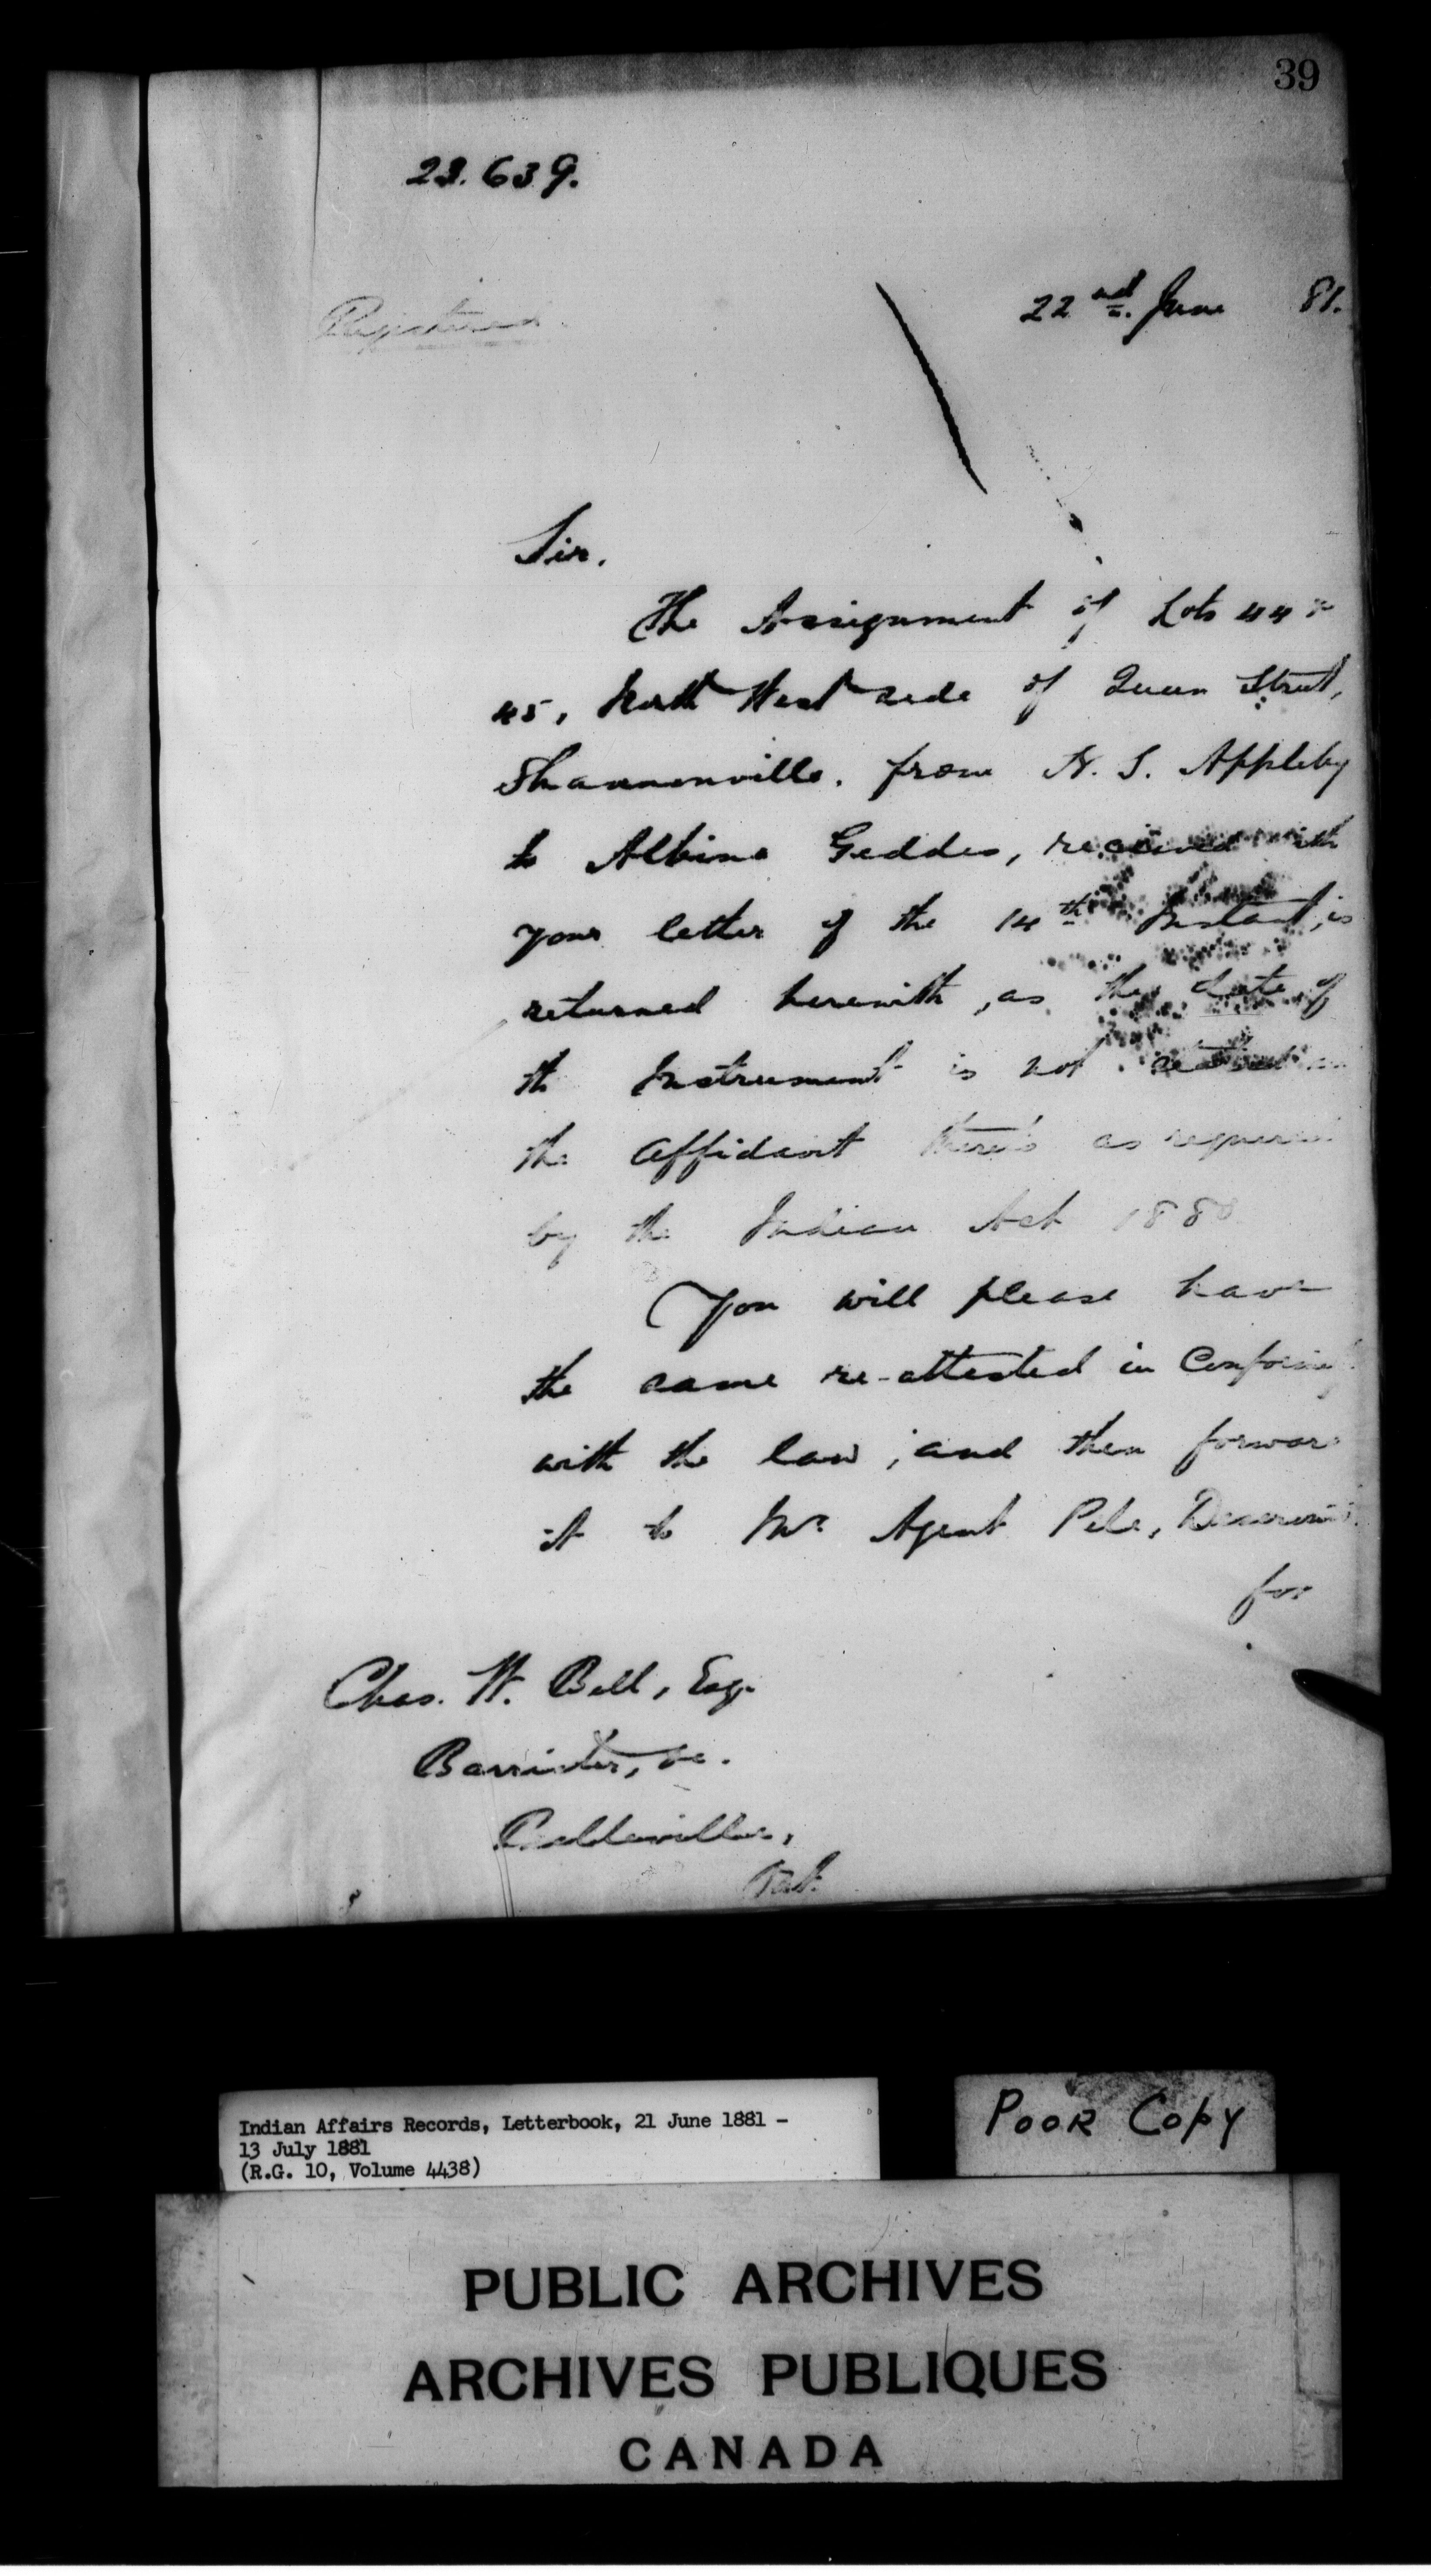 39
23.639.
Registered.
22nd. June 81.
Sir,
The Assignment of Lots 44 &
45, North West side of Queen Street,
Shannonville, from N. S. Appleby
to Albina Geddes, received with
your letter of the 14th Instant, is
returned herewith, as the date of
the Instrument is not
the affidavit thereto as required
by the Indian Act 1880
You will please have
the same re-attested in Conformity
with the law, and then forward
it to Mr. Agent Pile, Deseronto
for
Chas. W. Bell, Esq.
Barrister, &c.
Belleville,
Ont.
Indian Affairs Records, Letterbook, 21 June 1881 -
13 July 1881
(R.G. 10, Volume 4438)
POOR COPY
PUBLIC ARCHIVES
ARCHIVES PUBLIQUES
CANADA